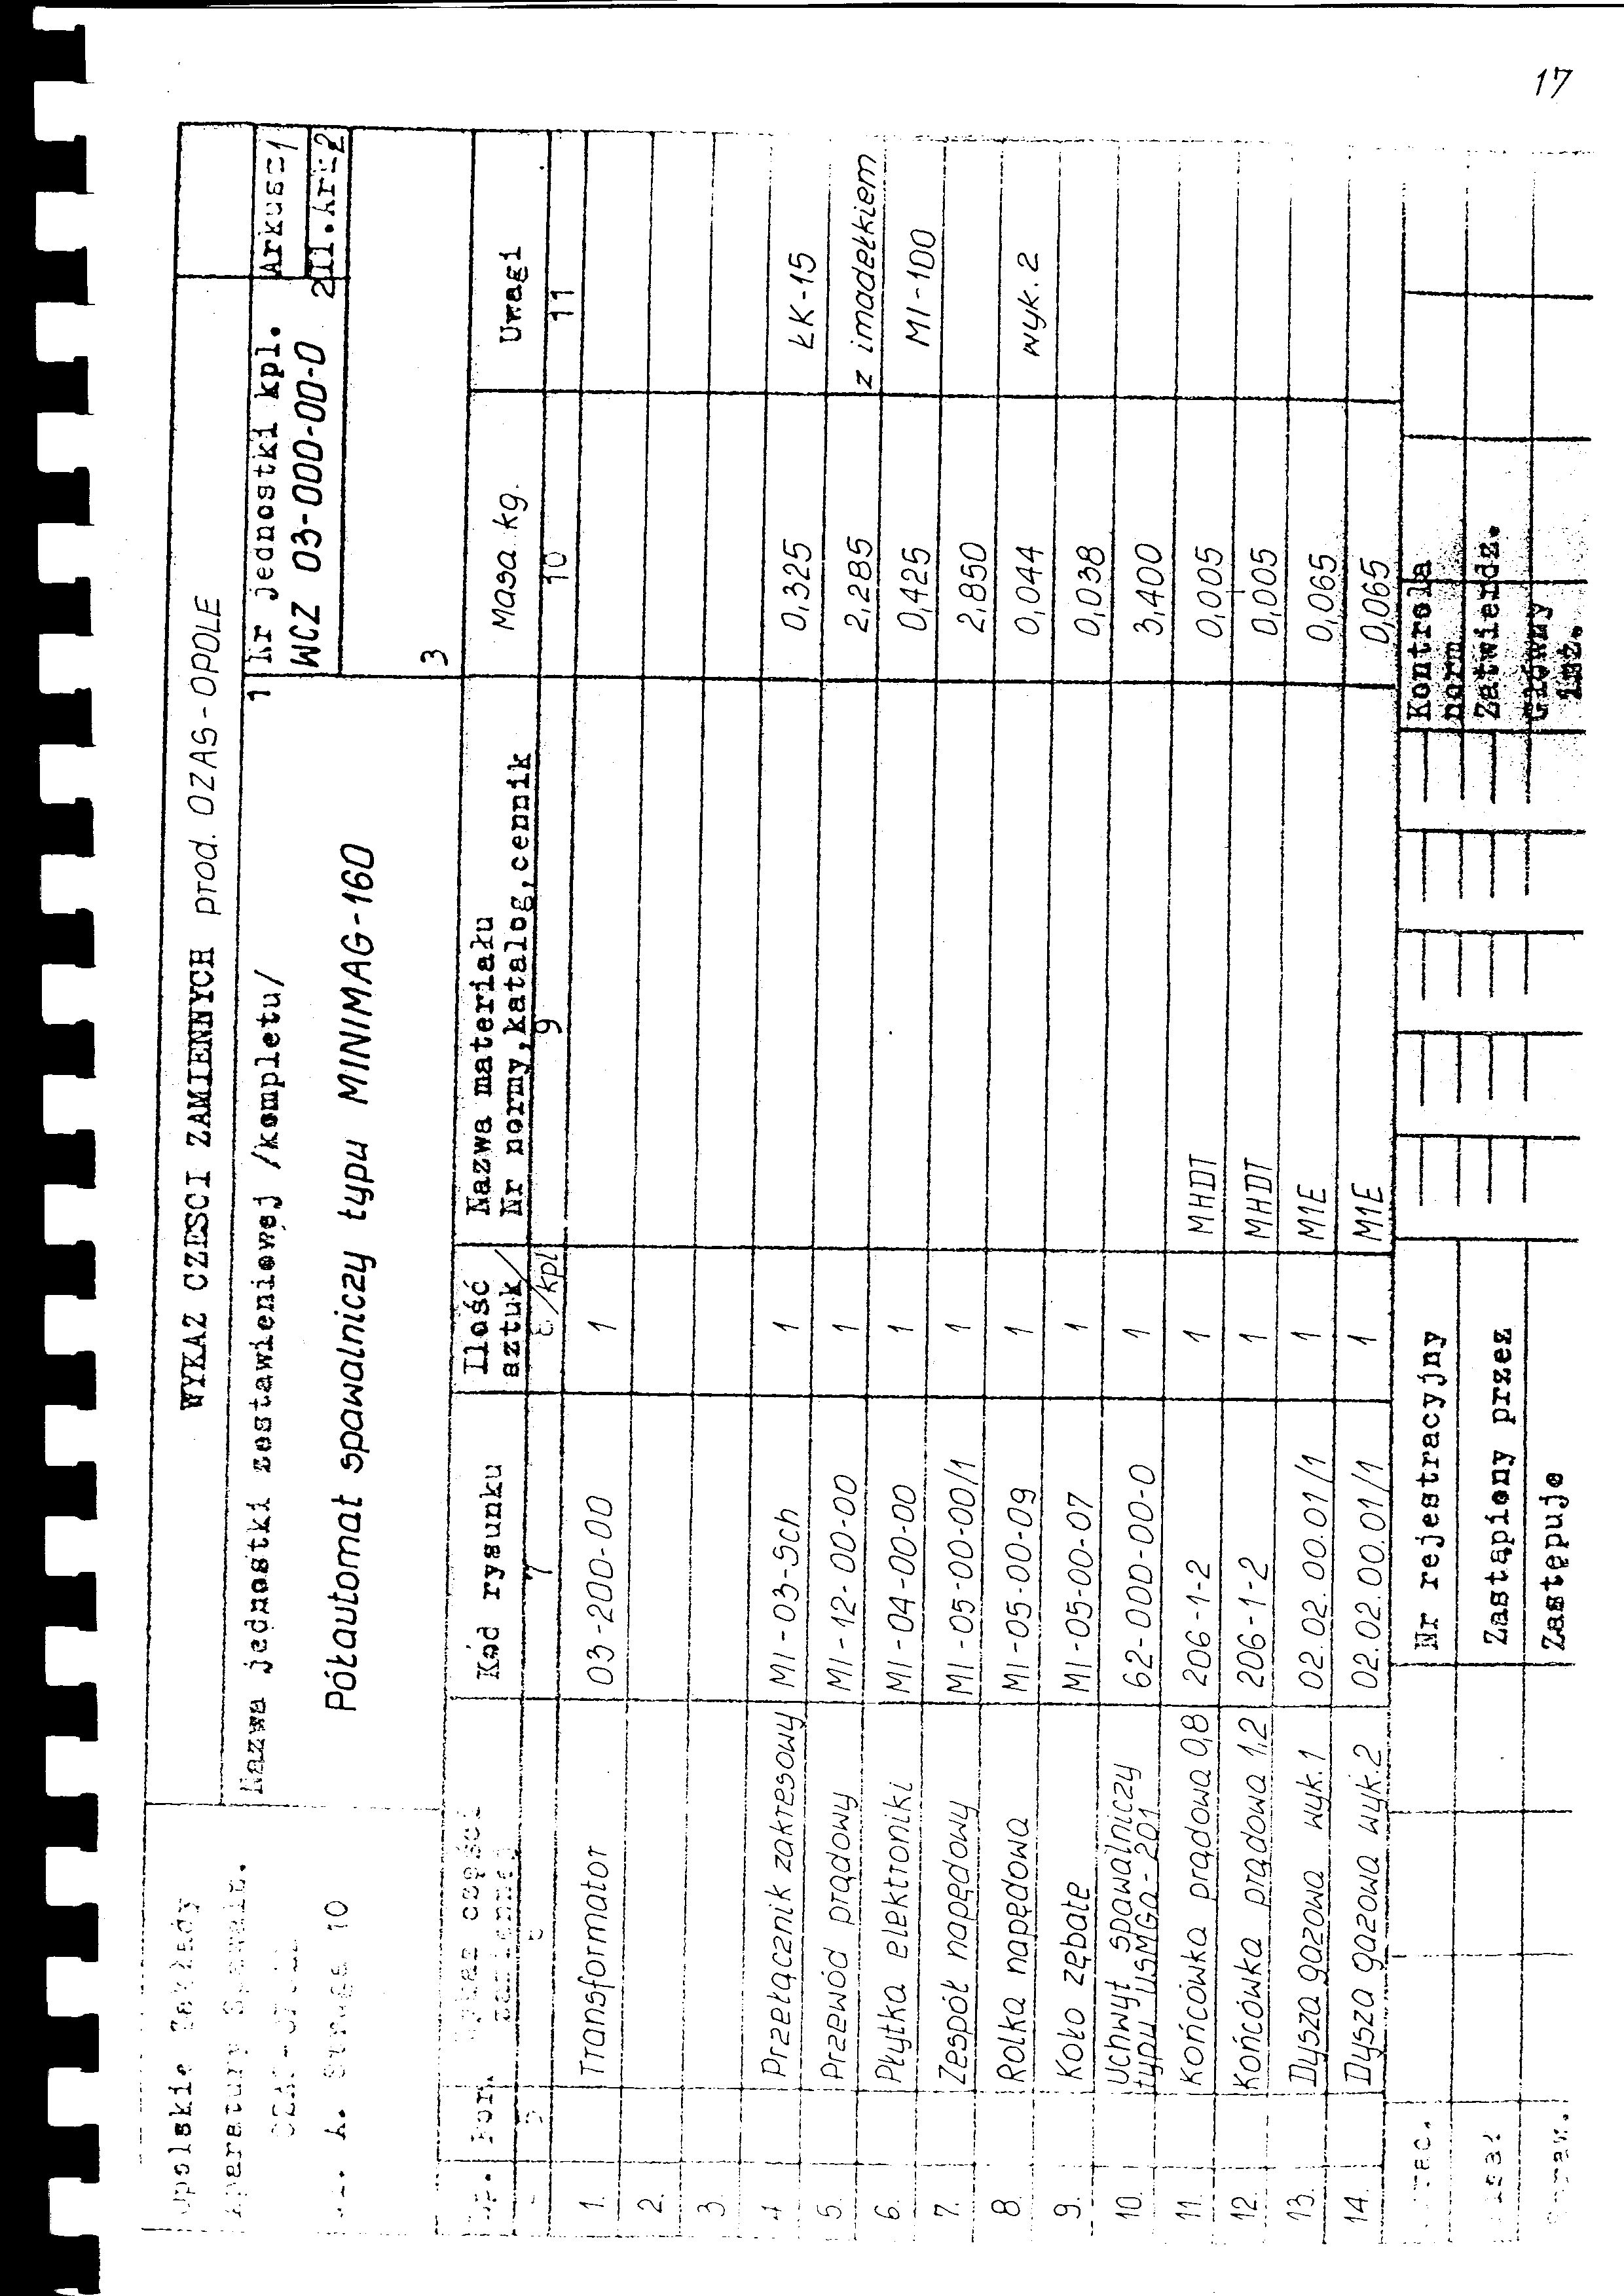 17
Opolskie Zakłady
Aparatury Spawaln.
A. Struga 10
WYKAZ CZESCI ZAMIENNYCH prod. OZAS-OPOLE
Nazwa jednostki zestawieniowej /kompletu/
Półautomat spawalniczy typu MINIMAG-160
1 Nr jednostki kpl. Arkusz 1
WCZ 03-000-00-0 2 Il.Ark 2
3
Kod rysunku Ilość sztuk/ Nazwa materiału Masa kg. Uwagi
Nr normy,katalog,cennik
7 8/kpl 9 10 11
1. Transformator 03-200-00 1
2.
3.
4 Przełącznik zakresowy MI-03-Sch 1 0,325 ŁK-15
5. Przewód prądowy MI-12-00-00 1 2,285 z imadełkiem
6. Płytka elektroniki MI-04-00-00 1 0,425 MI-100
7. Zespół napędowy MI-05-00-00/1 1 2,850
8. Rolka napędowa MI-05-00-09 1 0,044 wyk.2
9. Koło zębate MI-05-00-07 1 0,038
10. Uchwyt spawalniczy
typu USMGa-201 62-000-00-0 1 3,400
11. Końcówka prądowa 0,8 206-1-2 1 MHDT 0,005
12. Końcówka prądowa 1,2 206-1-2 1 MHDT 0,005
13. Dysza gazowa wyk.1 02.02.00.01/1 1 M1E 0,065
14. Dysza gazowa wyk.2 02.02.00.01/1 1 M1E 0,065
Nr rejestracyjny Kontrola norm
Zastąpiony przez Zatwierdz.
Zastępuje Główny inż.